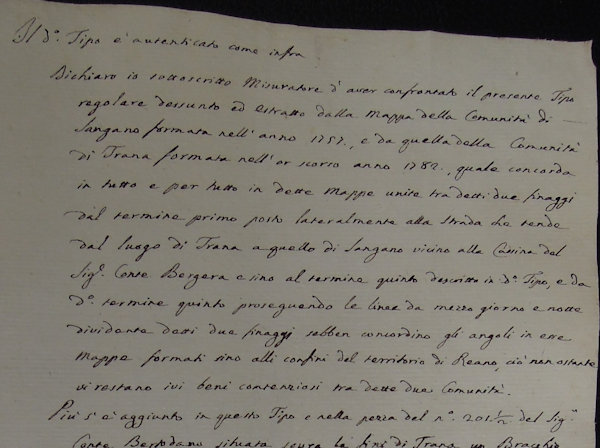 Il d.° Tipo è autenticato come infra
Dichiaro io sottoscritto Misuratore d'aver confrontato il presente Tipo
regolare dessunto ed estratto dalla mappa della Comunità di
Sangano formata nell'anno 1757., e da quella della Comunità
di Trana formata nell'or scorso anno 1782., quale concorda
in tutto e per tutto in dette mappe unite tra detti due finaggi
dal termine primo posto lateralmente alla strada che tende
dal luogo di Trana a quello di Sangano vicino alla Cassina del
Sig.r Conte Bergera e sino al termine quinto descritto in d.° Tipo, e da
d.° termine quinto proseguendo le linee da mezzo giorno e notte
dividente detti due finaggi sebben concordino gli angoli in esse
mappe formati sino alli confini del territorio di Reano, ciò non ostante
vi restano ivi beni contenziosi tra dette due Comunità.
Più s'è aggiunto in questo Tipo e nella pezza del n.° 201 1/2 del Sig.r
Conte Bertodano situata sovra la fini di Trana un Bracchio